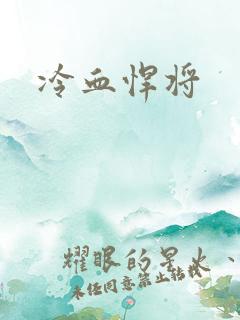 冷血悍将
耀眼的星火、
未经同意禁止转载